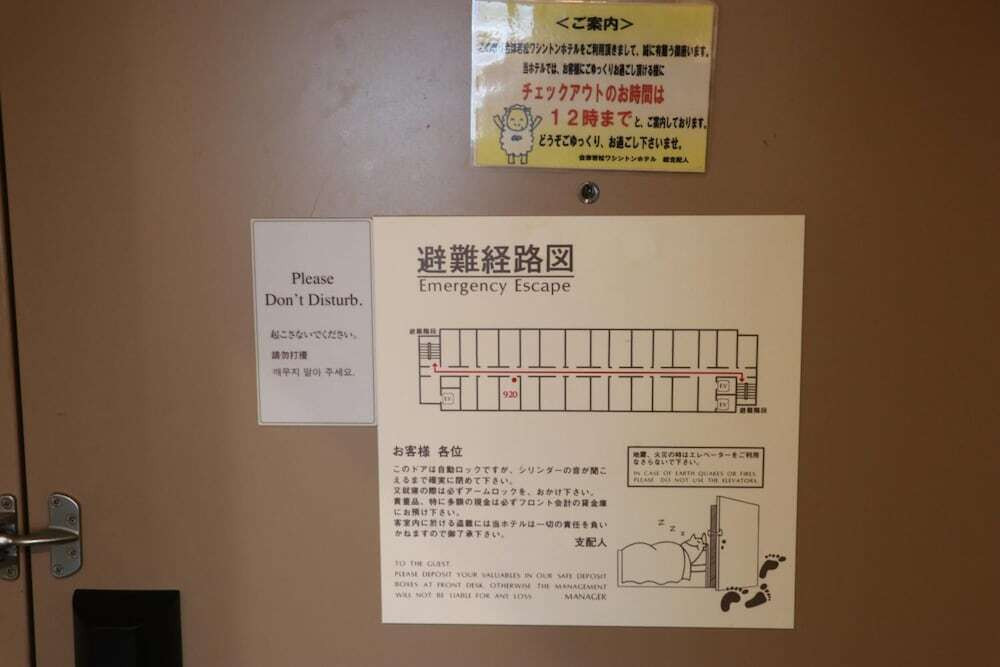 <ご案内>
この度は会津若松ワシントンホテルをご利用頂きまして、誠に有難う御座います。
当ホテルでは、お客様にごゆっくりお過ごし頂ける様に
チェックアウトのお時間は
12時までと、ご案内しております。
どうぞごゆっくり、お過ごし下さいませ。
会津若松ワシントンホテル 総支配人
Please
Don't Disturb.
起こさないでください。
請勿打擾
깨우지 말아 주세요.
避難経路図
Emergency Escape
避難階段
920
EV
EV
EV
避難階段
お客様 各位
このドアは自動ロックですが、シリンダーの音が聞こ
えるまで確実に閉めて下さい。
又就寝の際は必ずアームロックを、おかけ下さい。
貴重品、特に多額の現金は必ずフロント会計の貸金庫
にお預け下さい。
客室内に於ける盗難には当ホテルは一切の責任を負い
かねますので御了承下さい。
支配人
TO THE GUEST.
PLEASE DEPOSIT YOUR VALUABLES IN OUR SAFE DEPOSIT
BOXES AT FRONT DESK. OTHERWISE THE MANAGEMENT
WILL NOT BE LIABLE FOR ANY LOSS. MANAGER
地震、火災の時はエレベーターをご利用
なさらないで下さい。
IN CASE OF EARTH QUAKES OR FIRES,
PLEASE DO NOT USE THE ELEVATORS.
Z Z Z